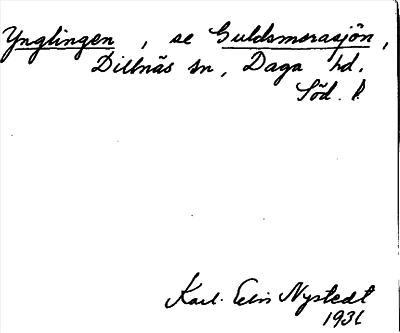 Ynglingen, se Guldsmorasjön,
Dillnäs sn, Daga hd.
Söd. l.
Karl. Nystedt
1931